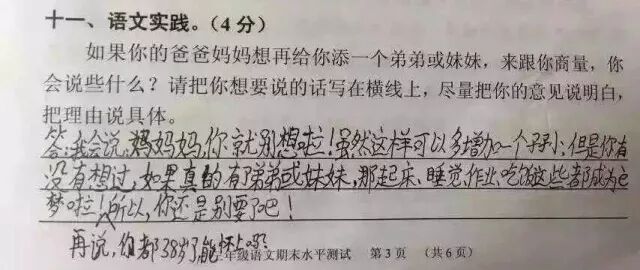 十一、语文实践。(4分)
如果你的爸爸妈妈想再给你添一个弟弟或妹妹，来跟你商量，你
会说些什么？请把你想要说的话写在横线上，尽量把你的意见说明白，
把理由说具体。
答:我会说:妈妈妈,你就别想啦!虽然这样可以多增加一个孩小,但是你有
没有想过,如果真的有弟弟或妹妹,那起床、睡觉,作业、吃饭这些都成为
梦啦!所以,你还是别要了吧!
再说,你都38岁了能怀上吗?
年级语文期末水平测试 第3页 (共6页)